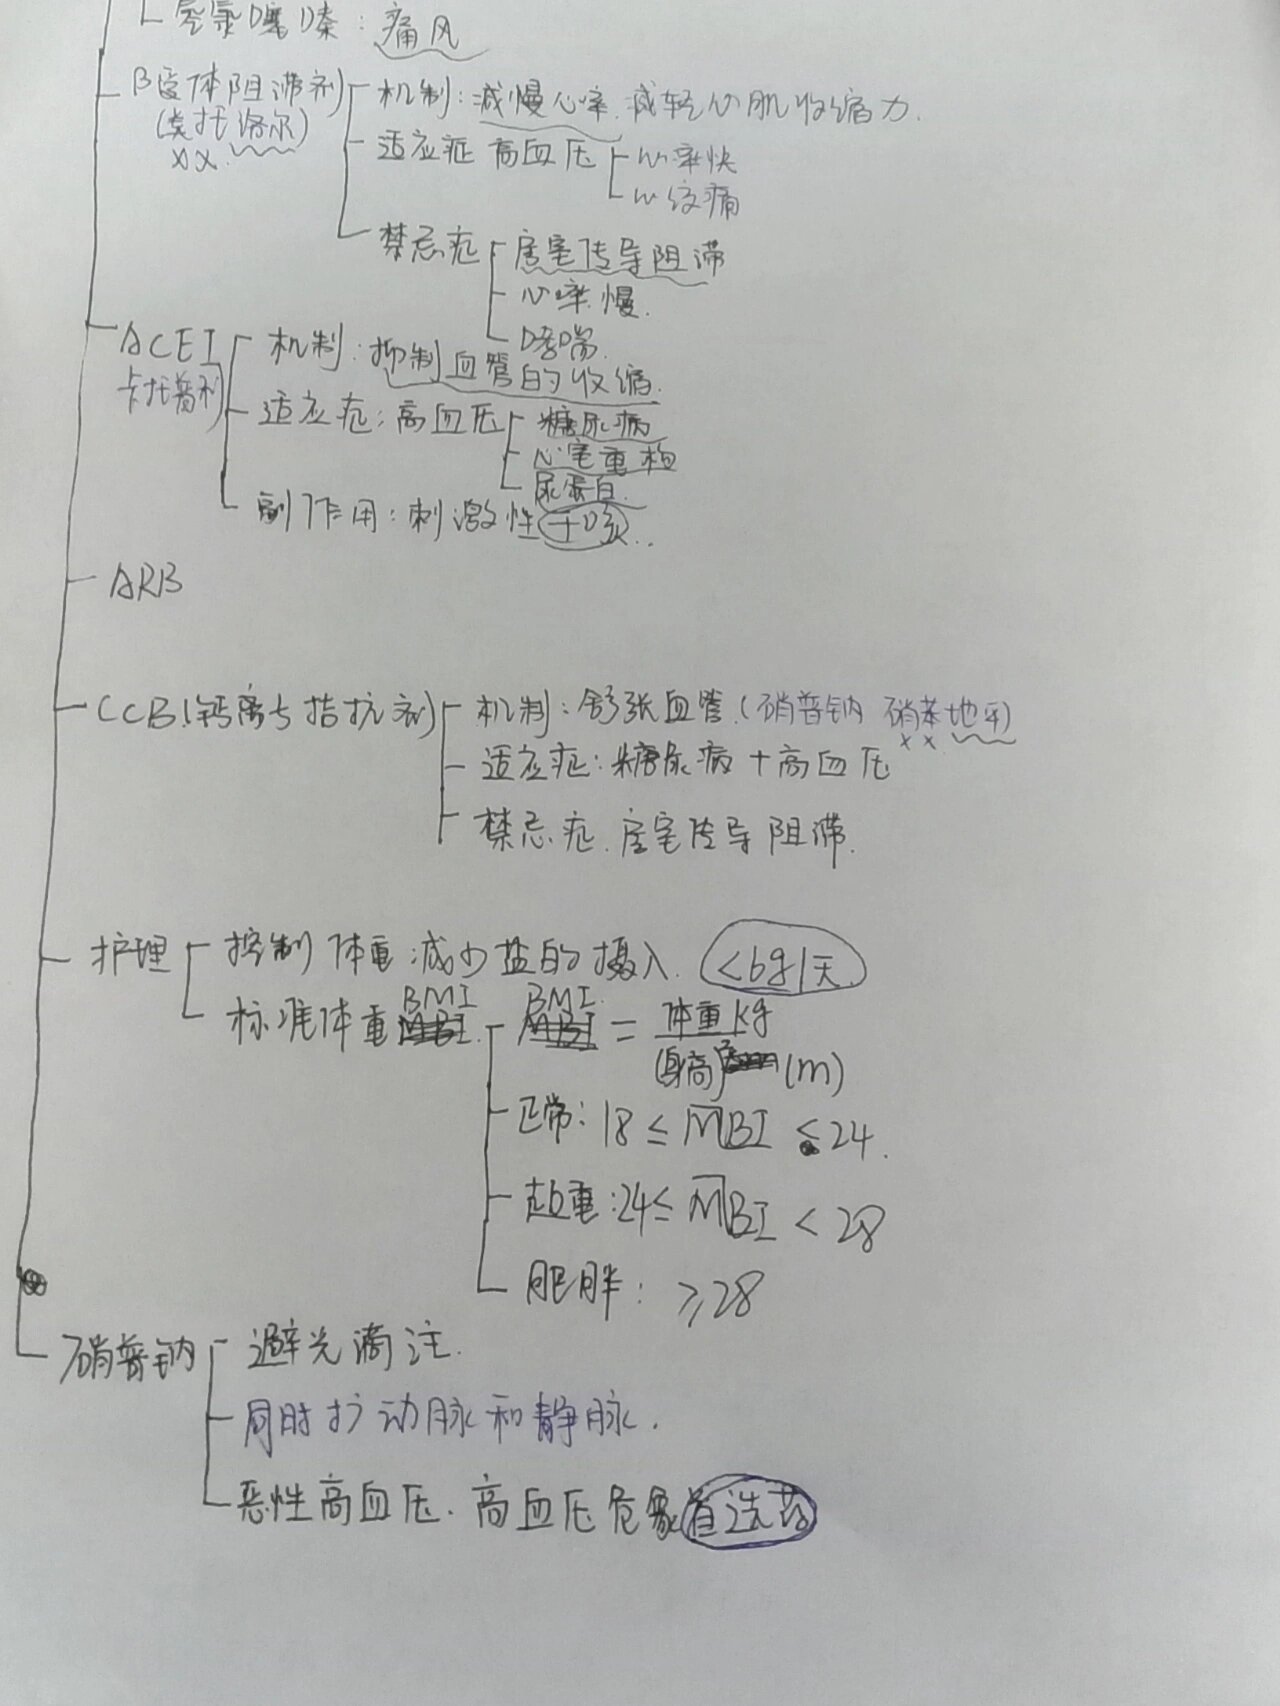 氢氯噻嗪：痛风
β受体阻滞剂 机制：减慢心率.减轻心肌收缩力.
(美托洛尔) 适应症 高血压 心率快
xx. 心绞痛
禁忌症 房室传导阻滞
心率慢.
哮喘.
ACEI 机制：抑制血管的收缩.
卡托普利 适应症：高血压 糖尿病
心室重构
尿蛋白.
副作用：刺激性干咳..
ARB
CCB(钙离子拮抗剂) 机制：舒张血管.(硝普钠 硝苯地平)
xx
适应症：糖尿病+高血压
禁忌症.房室传导阻滞.
护理 控制体重:减少盐的摄入. <6g/天
标准体重BMI BMI = 体重kg
(身高)² (m)
正常：18≤MBI≤24.
超重:24≤MBI<28
肥胖：≥28
硝普钠 避光滴注.
同时扩动脉和静脉.
恶性高血压.高血压危象首选药